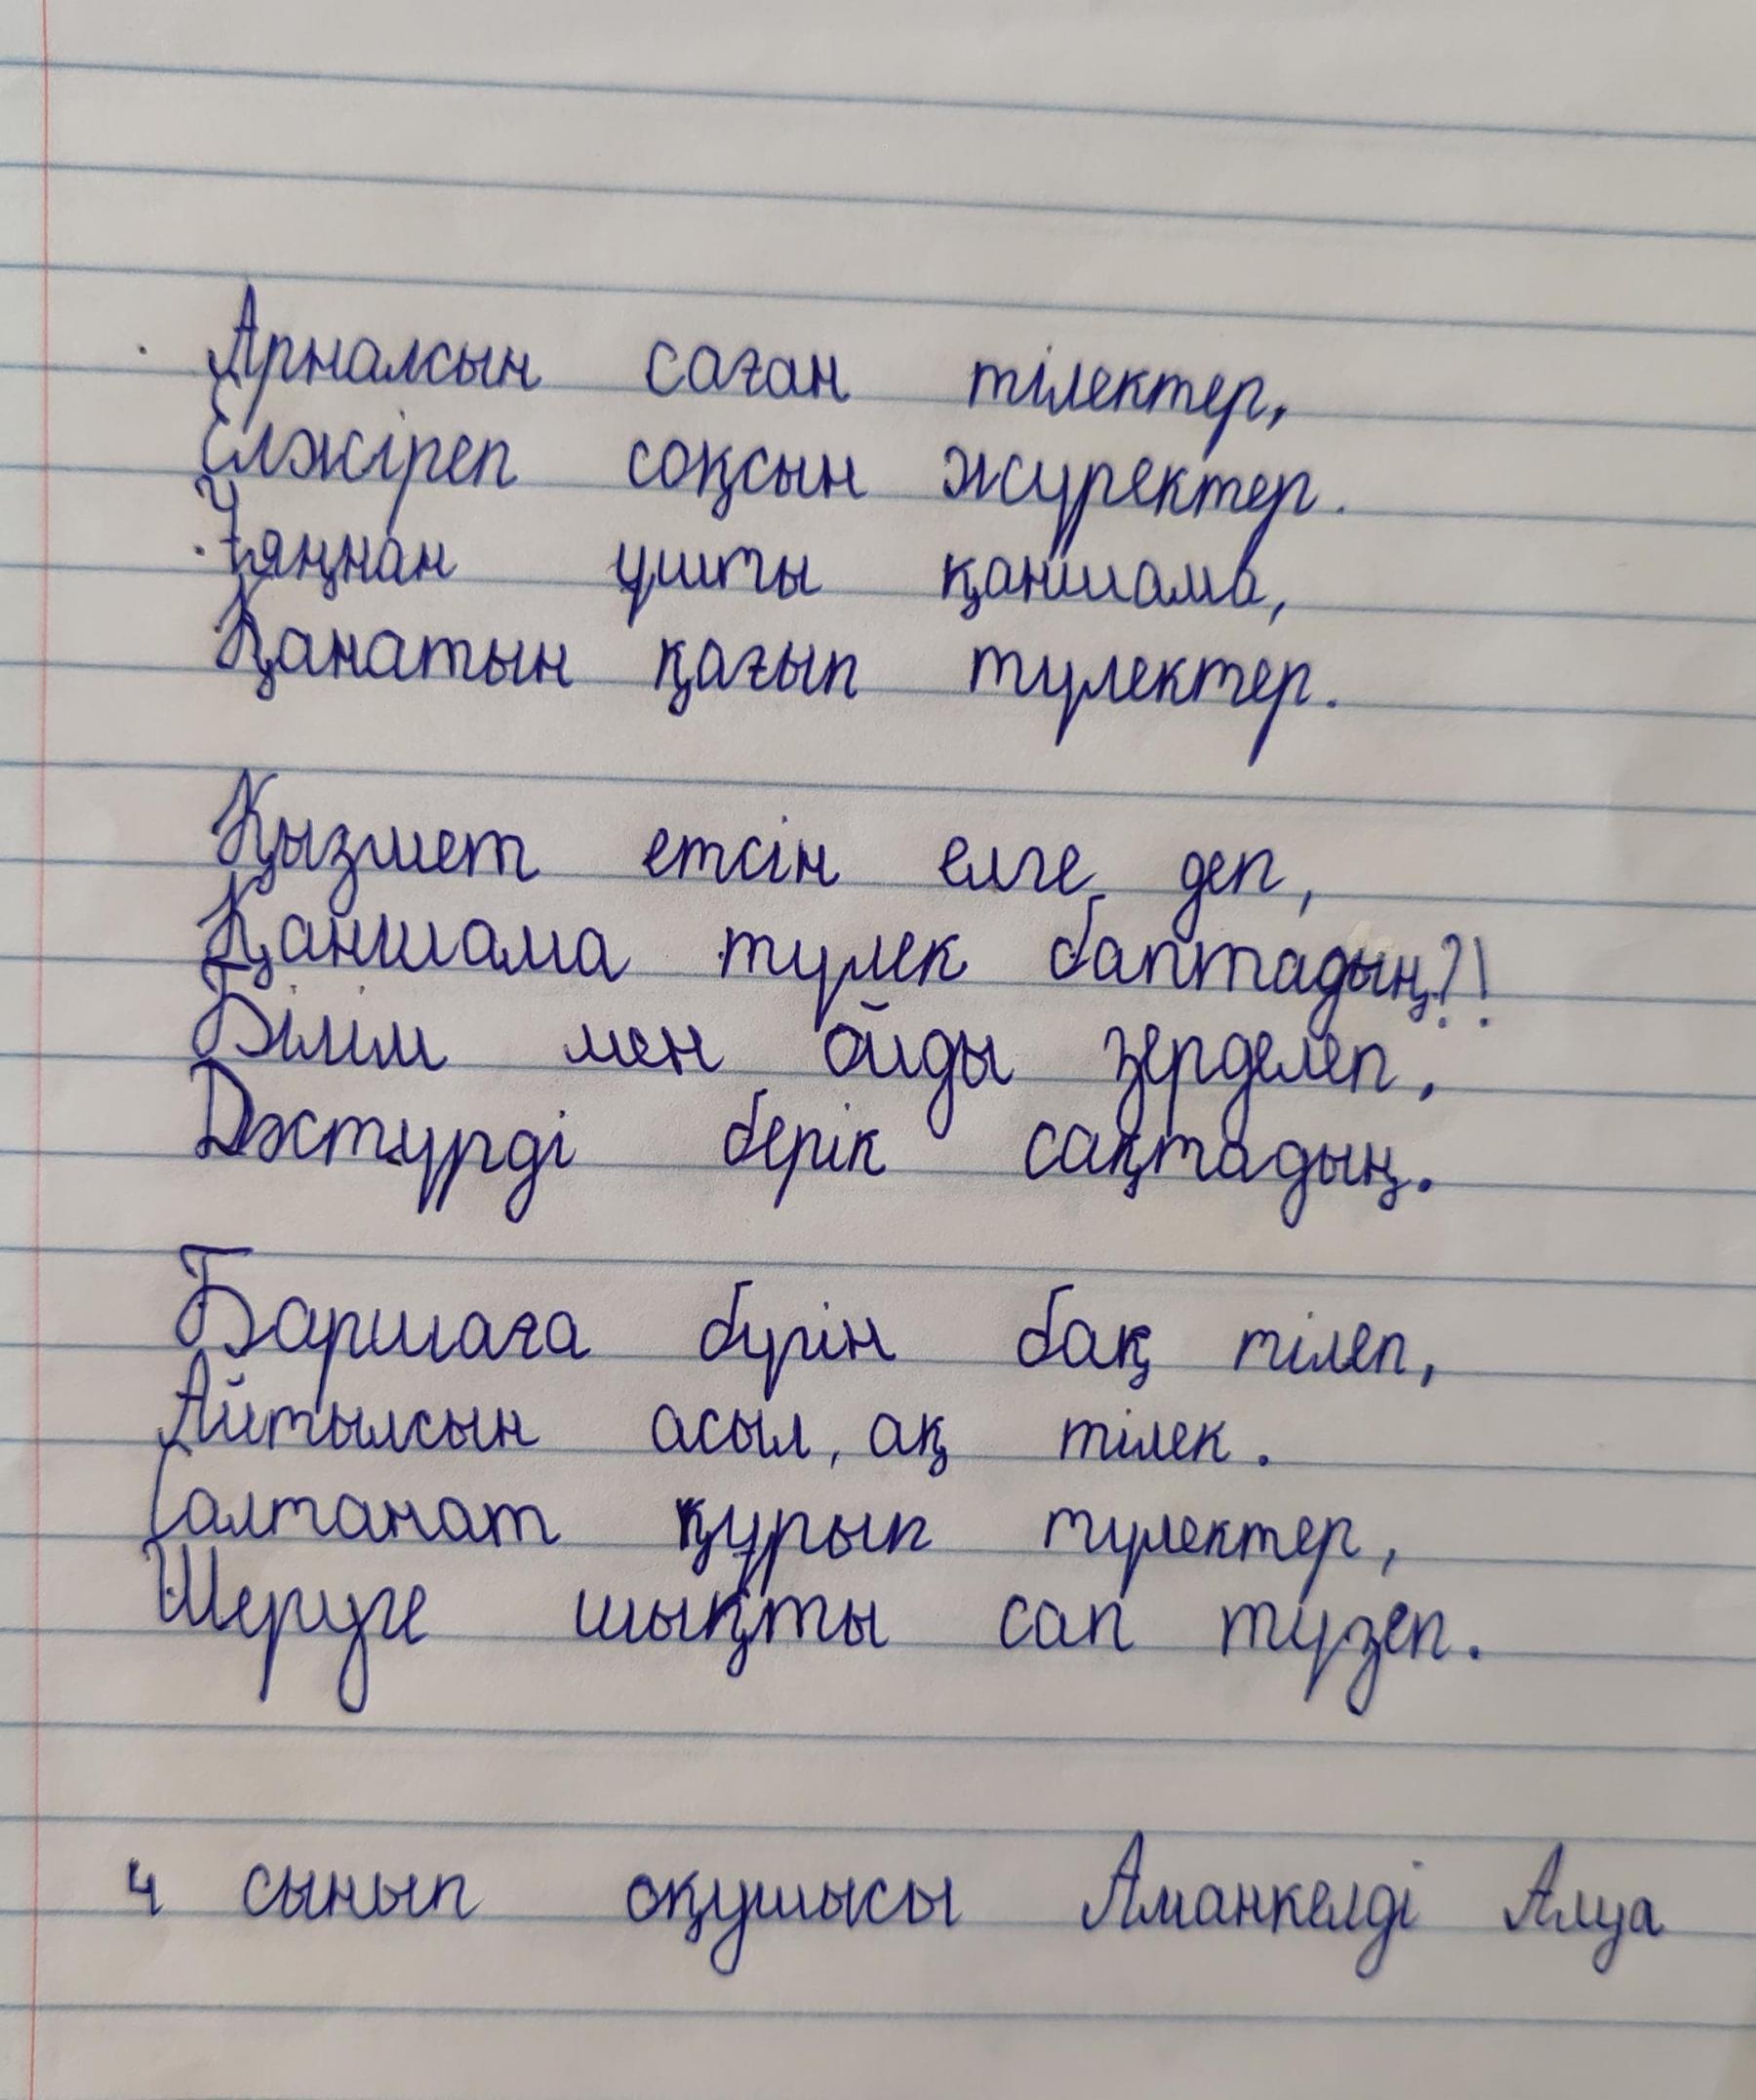 Арналсын саған тілектер,
Елжіреп соқсын жүректер.
Ұяңнан ұшты қаншама,
Қанатын қағып түлектер.
Қызмет етсін елге деп,
Қаншама түлек баптадың?!
Білім мен ойды зерделеп,
Дәстүрді берік сақтадың.
Баршаға бүгін бақ тілеп,
Айтылсын асыл, ақ тілек.
Салтанат құрып түлектер,
Шеруге шықты сап түзеп.
4 сынып оқушысы Аманкелді Алуа